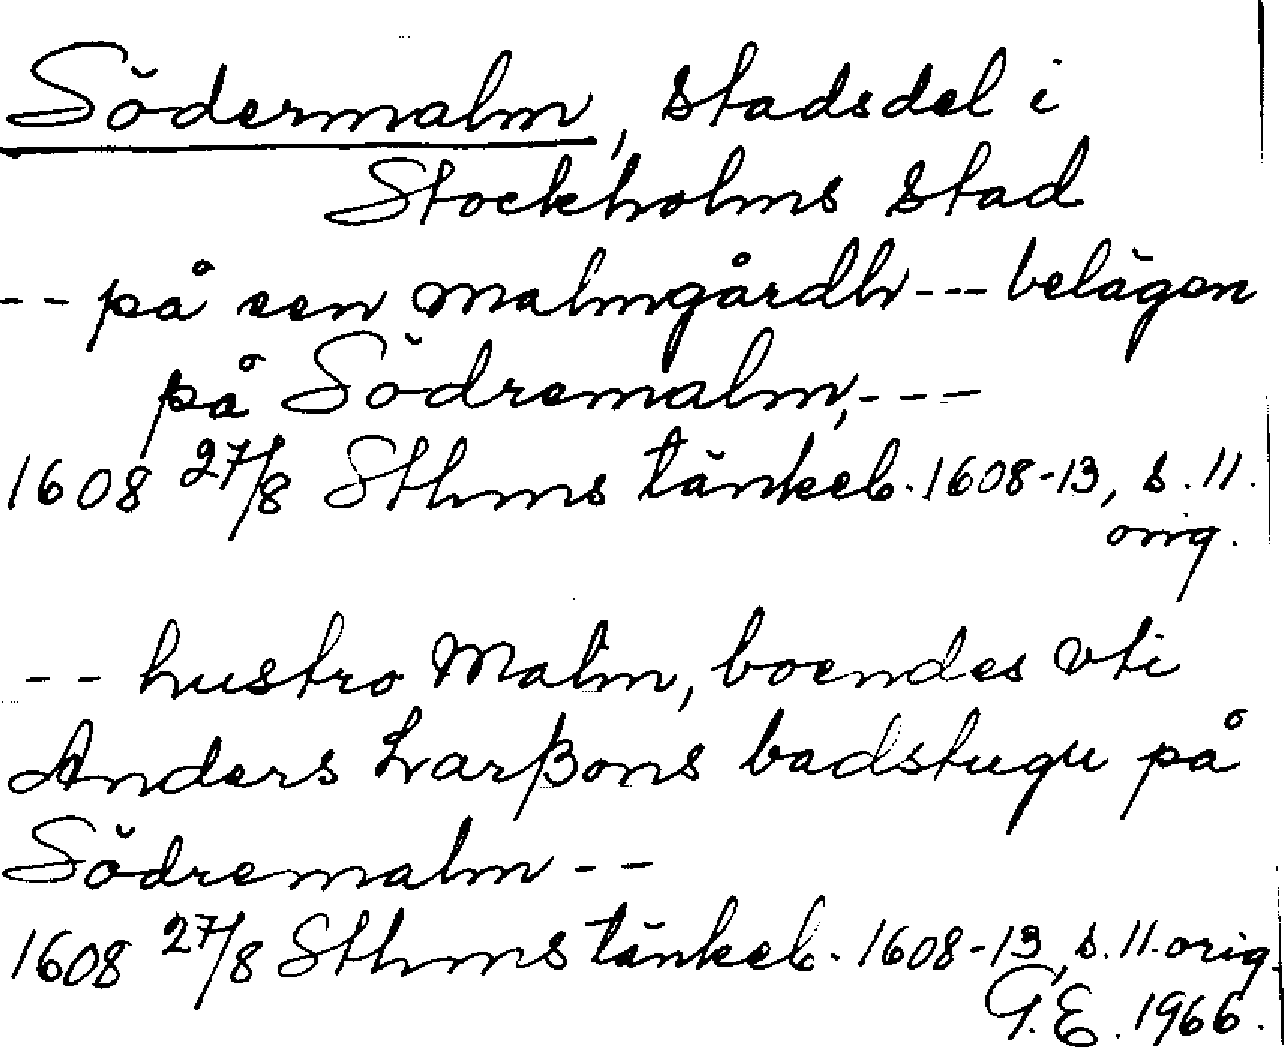 Södermalm, stadsdel i
Stockholms stad
-- på een malmgårdh --- belägen
på Södremalm, ---
1608 27/8 Sthms tänkeb. 1608-13, s. 11.
orig.
-- hustro Malin, boendes vti
Anders Larßons badstugu på
Södremalm --
1608 27/8 Sthms tänkeb. 1608-13, s. 11. orig.
G.E. 1966.